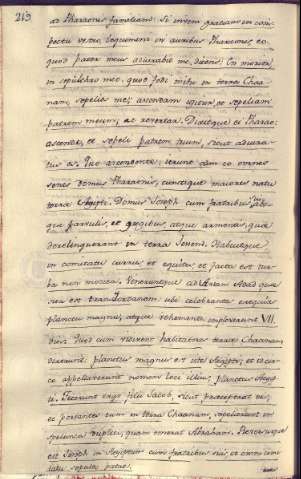 213
ad Pharaonis familiam: Si inveni gratiam in con
spectu vestro, loquimini in auribus Pharaonis: eo
quod pater meus adiuraverit me, dicens: En morior,
in sepulchro meo, quod fodi mihi in terra Chana
nam, sepelies me; ascendam igitur, et sepeliam
patrem meum, ac revertar. Dixitque ei Pharao:
ascende, et sepeli patrem tuum, sicut adiura
tus es. Quo ascendente, ierunt cum eo omnes
senes domus Pharaonis, cunctique maiores natu
terræ Egipti: Domus Joseph cum fratribus suis, abs
que parvulis, et gregibus, atque armentis, quæ
dereliquerant in terra Jessen. Habuitque
in comitatu currus et equites: et facta est tur
ba non modica. Veneruntque ad Aream Atad quæ
sita est trans Jordanem: ubi celebrantes exequias
planctu magno, atque vehementi impleverunt VII.
dies. Quod cum vidissent habitatores terræ Chanaan,
dixerunt: planctus magnus est iste Egiptiis, et idcir
co appellaverunt nomen loci illius, planctus Egip
ti. Fecerunt ergo filii Jacob, sicut præceperat eis;
et portantes eum in terra Chanaam, sepelierunt in
spelunca duplici, quam emerat Abraham. Reversusque
est Joseph in Egiptum cum fratribus suis, et omni comi
tatu sepulto patre.